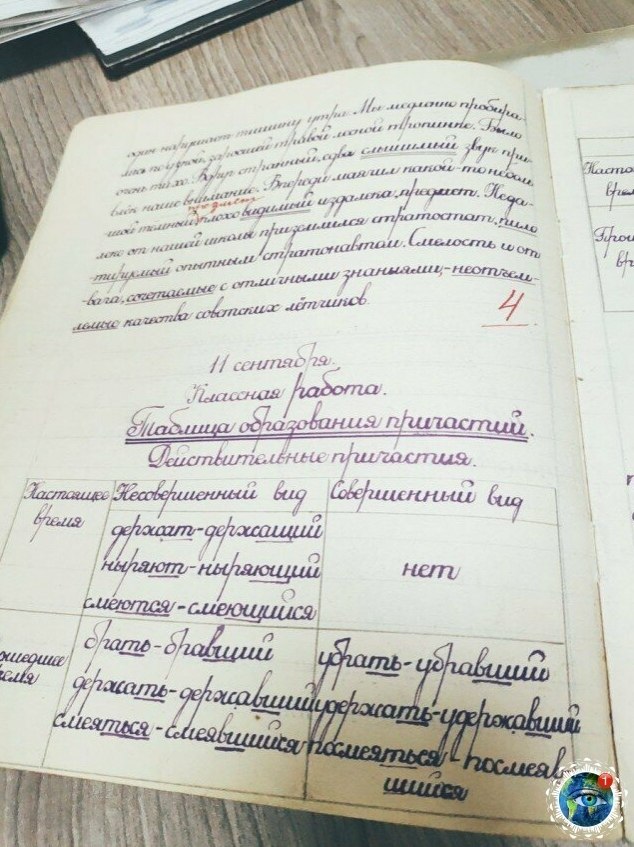 один нарушает тишину утра. Мы медленно пробира-
лись по узкой, заросшей травой лесной тропинке. Было
очень тихо. Вдруг странный, едва слышимый звук при-
влёк наше внимание. Впереди маячил какой-то неболь
предмет
шой тёмный плохо видимый издалека, предмет. Неда-
леко от нашей школы приземлился стратостат, пило
тируемый опытным стратонавтом. Смелость и от
-вага, сочетаемые с отличными знаниями,- неотъем-
лемые качества советских лётчиков.
4
11 сентября.
Классная работа.
Таблица образования причастий.
Действительные причастия.
Настоящее время
Несовершенный вид
Совершенный вид
держат-держащий
ныряют-ныряющий
смеются-смеющийся
нет
рошедшее
ремя
брать-бравший
держать-державший
смеяться-смеявшийся
убрать-убравший
удержать-удержавший
посмеяться-посмеяв
шийся
Насто
врем
Прош
вр
1